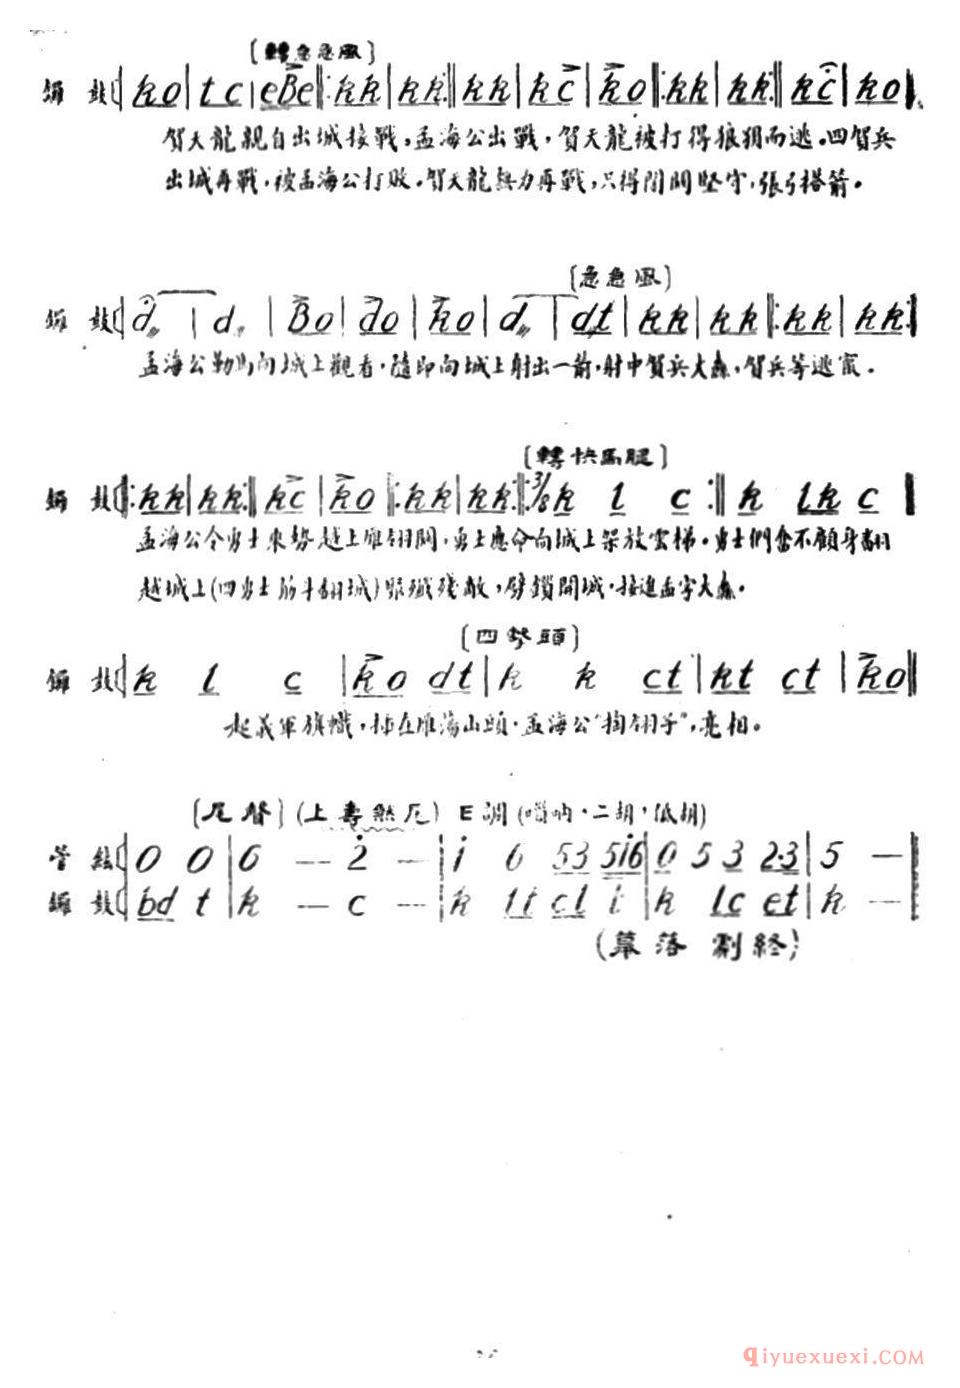 〔轉急急風〕
鑼 鼓 ko | t c | eBe ‖: kk | kk :‖ kk | kc | ko ‖: kk | kk :‖ kc | ko
賀天龍親自出城接戰，孟海公出戰，賀天龍被打得狼狽而逃。四賀兵
出城再戰，被孟海公打敗。賀天龍無力再戰，只得閉關堅守，張弓搭箭。
〔急急風〕
鑼 鼓 d | d | Bo | do | ko | d | dt | kk | kk ‖: kk | kk :‖
孟海公勒馬向城上觀看，隨即向城上射出一箭，射中賀兵大纛，賀兵等逃竄。
〔轉快馬腿〕
鑼 鼓 ‖: kk | kk :‖ kc | ko ‖: kk | kk :‖: 3/8 k l c :‖ k lk c
孟海公令勇士乘勢越上雁翎關，勇士應命向城上架放雲梯。勇士們奮不顧身翻
越城上(四勇士筋斗翻城)殲殘敵，劈鎖開城，接進孟字大纛。
〔四勢頭〕
鑼 鼓 k l c | ko dt | k k ct | kt ct | ko ‖
起義軍旗幟，揷在雁蕩山頭，孟海公"掏翎子"，亮相。
〔尾聲〕(上壽煞尾) E調(嗩吶，二胡，低胡)
管 絃 0 0 | 6 — 2 — | i 6 53 5i6 | 0 5 3 2·3 | 5 —
鑼 鼓 bd t | k — c — | k lt cl t | k lc et | k —
(幕落 劇終)
qiyuexuexi.COM